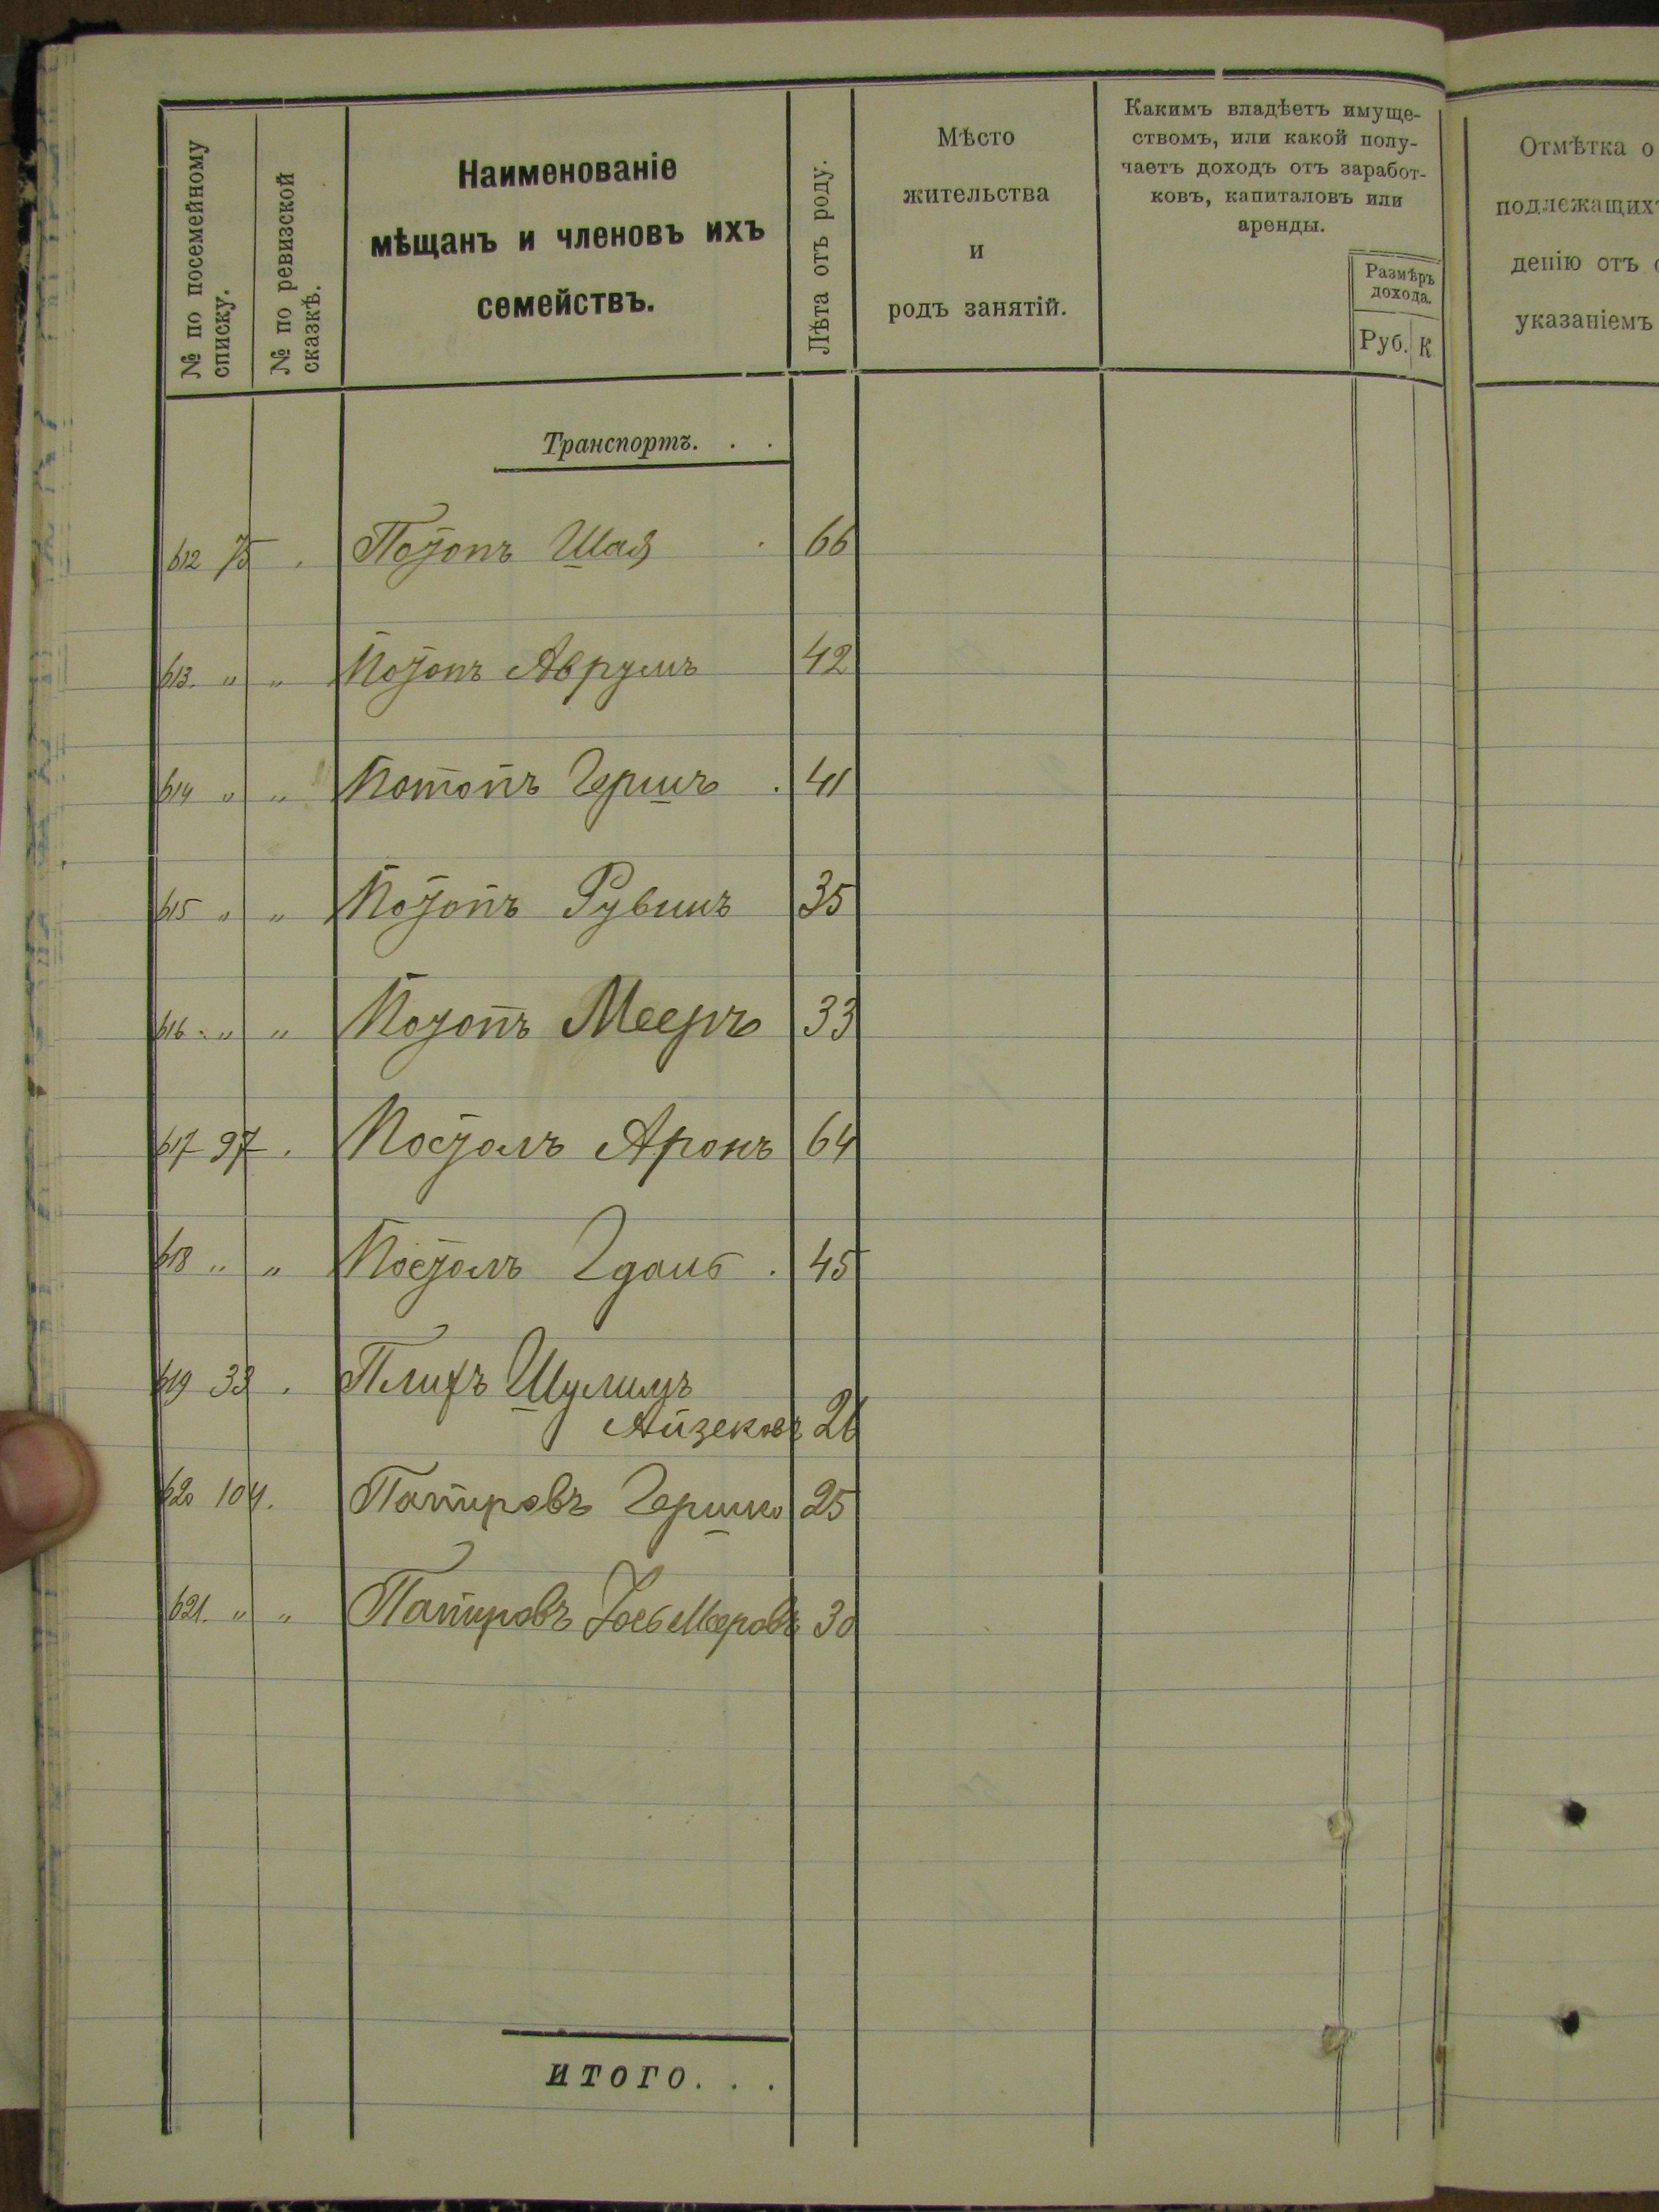 № по посемейному
списку.
№ по ревизской
сказкѣ.
Наименованіе
мѣщанъ и членовъ ихъ
семействъ.
Лѣта отъ роду.
Мѣсто
жительства
и
родъ занятій.
Какимъ владѣетъ имуще-
ствомъ, или какой полу-
чаетъ доходъ отъ заработ-
ковъ, капиталовъ или
аренды.
Размѣръ
дохода.
Руб. К
Отмѣтка о
подлежащихъ
денію отъ
указаніемъ
Транспортъ. . .
612 75 . Потопъ Шая . 66
613. " " Потопъ Аврумъ 42
614 " " Потопъ Гершъ . 41
615 " " Потопъ Рувинъ 35
616 " " Потопъ Мееръ 33
617 97 . Постолъ Аронъ 64
618 " " Постолъ Гдаль . 45
619 33 . Плихъ Шулимъ
Айзековъ 26
620 104. Папировъ Гершко 25
621. " " Папировъ Іось Меровъ 30
ИТОГО. . .